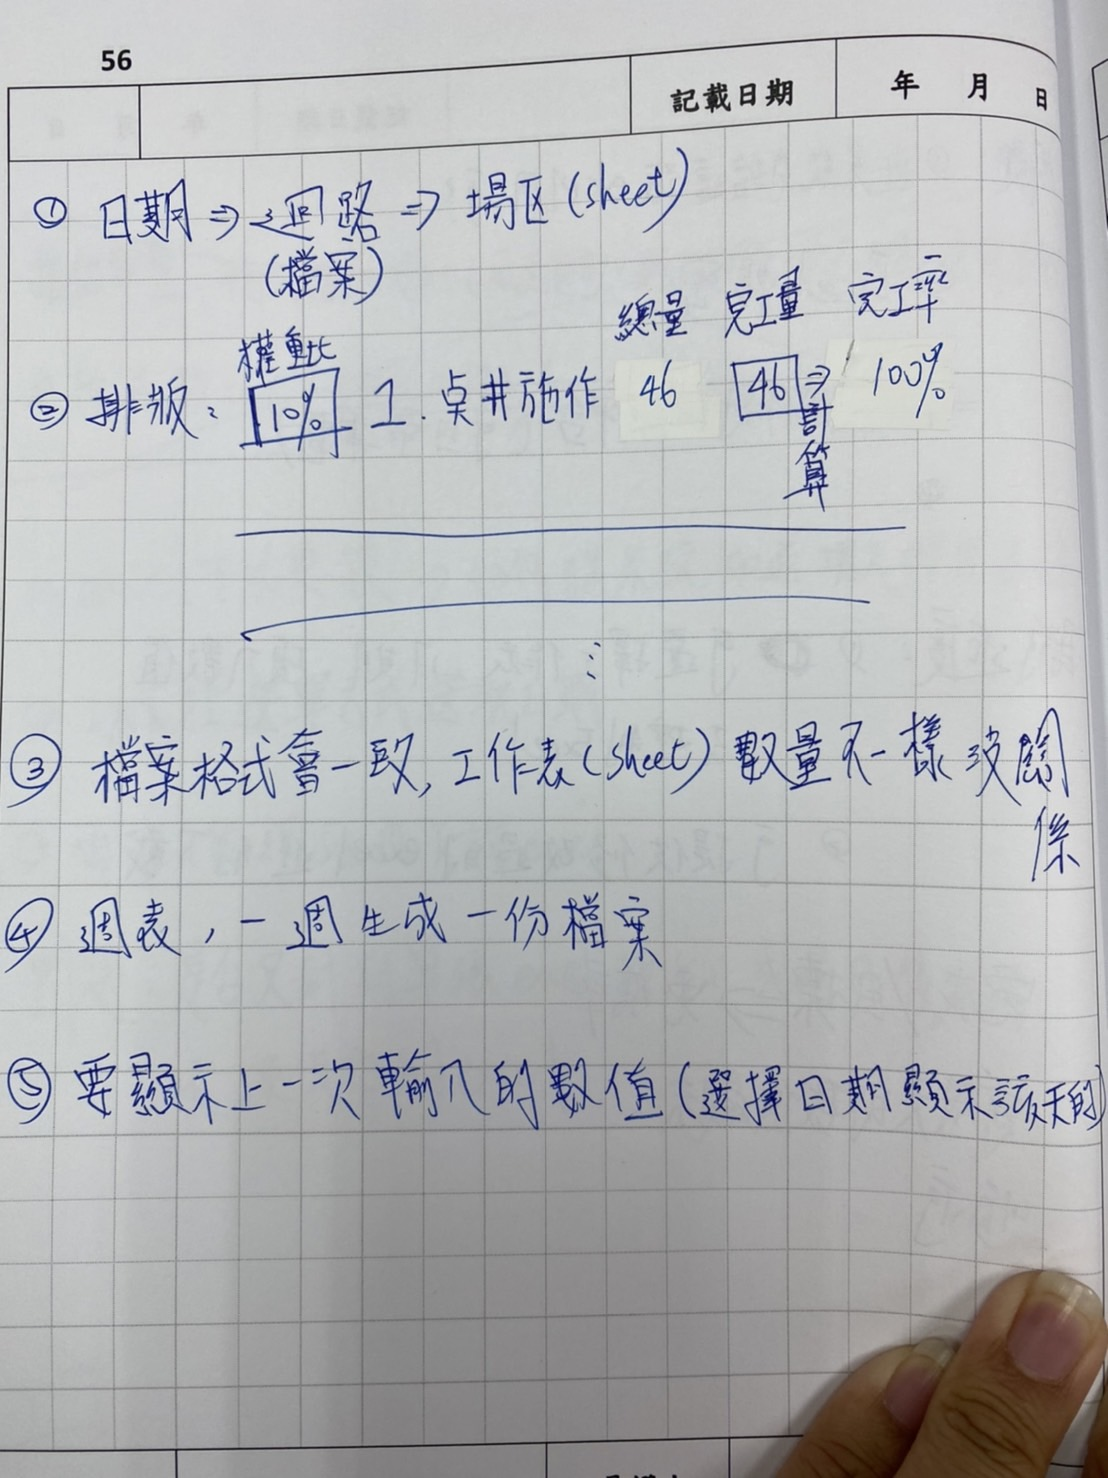 56
記載日期 年 月 日
① 日期 ⇒ 迴路 ⇒ 場区 (sheet)
(檔案)
總量 完工量 完工率
權重比
② 排版: 10% 1. 点井施作 46 46 ⇒ 100%
計算
⋮
③ 檔案格式會一致, 工作表 (sheet) 數量不一樣沒關
係
④ 週表, 一週生成一份檔案
⑤ 要顯示上一次輸入的數值 (選擇日期顯示該天的)